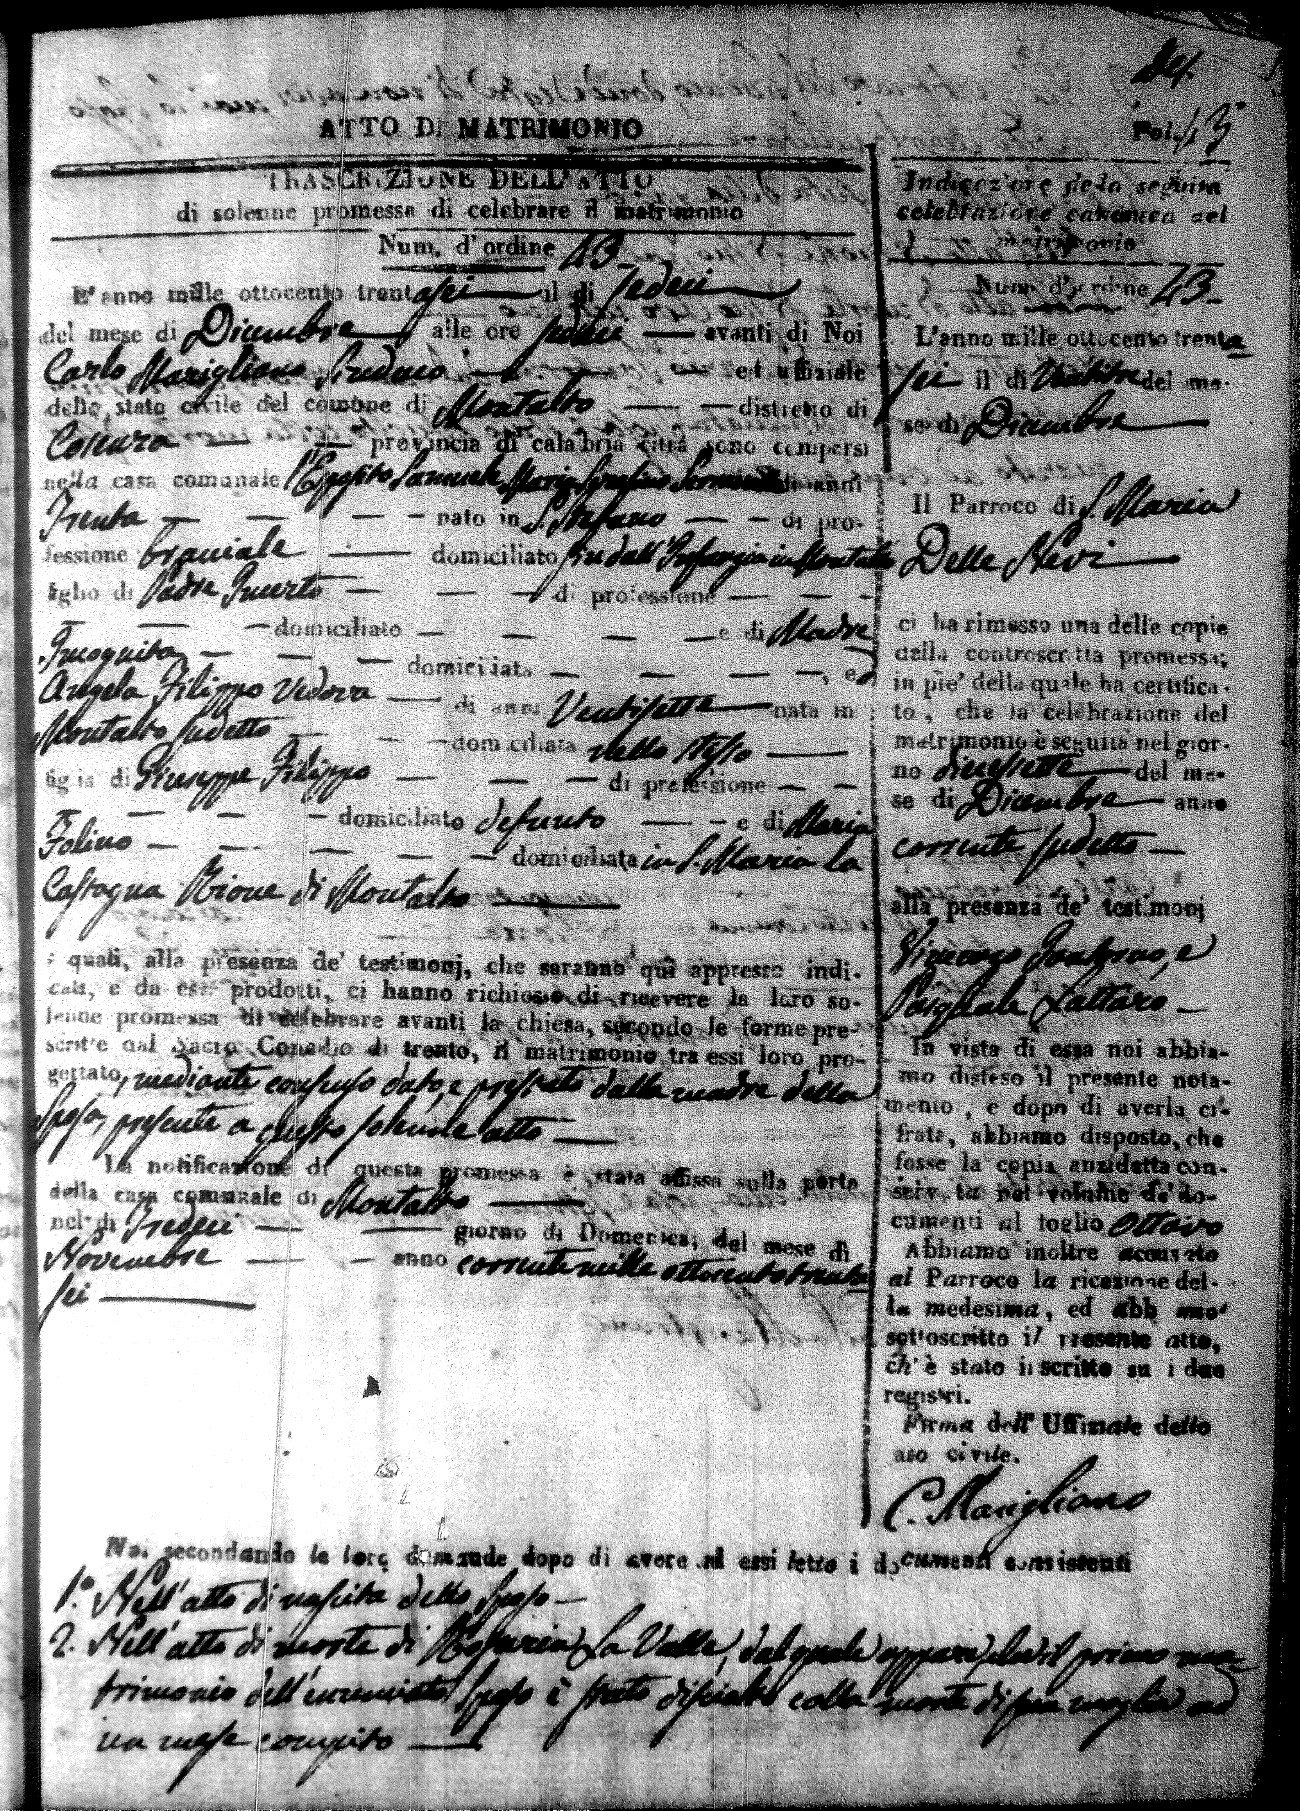 ATTO DI MATRIMONIO
Fol. 43
TRASCRIZIONE DELL'ATTO
di solenne promessa di celebrare il matrimonio
Num. d'ordine 43
L'anno mille ottocento trentasei il dì sedeci
del mese di Dicembre alle ore avanti di Noi
Carlo Marigliano Sindaco ed uffiziale
dello stato civile del comune di Montalto distretto di
Cosenza provincia di calabria citra sono comparsi
nella casa comunale Esposito Samuele Maria Serafino di anni
Trenta nato in S. Stefano di pro-
fessione bracciale domiciliato in Montalto
figlio di Padre Incerto di professione
domiciliato e di Madre
Incognita domiciliata , ed
Angela Filippo Vedova di anni Ventisette nata in
Montalto sudetto domiciliata nello stesso
figlia di Giuseppe Filippo di professione
domiciliato defunto e di Maria
Folino domiciliata in S. Maria la
Castagna Rione di Montalto
i quali, alla presenza de' testimonj, che saranno quì appresso indi-
cati, e da essi prodotti, ci hanno richiesto di ricevere la loro so-
lenne promessa di celebrare avanti la chiesa, secondo le forme pre-
scritte dal Sacro Concilio di trento, il matrimonio tra essi loro pro-
gettato, mediante consenso dato, e prestato dalla madre della
sposa, presente a questo solenne atto
La notificazione di questa promessa è stata affissa sulla porta
della casa comunale di Montalto
nel dì Tredeci giorno di Domenica, del mese di
Novembre anno corrente mille ottocento trenta
sei
Indicazione della seguita
celebrazione canonica del
matrimonio
Num. d'ordine 43
L'anno mille ottocento trenta
sei il dì Ventitre del me-
se di Dicembre
Il Parroco di S. Maria
Delle Nevi
ci ha rimesso una delle copie
della controscritta promessa;
in piè della quale ha certifica-
to, che la celebrazione del
matrimonio è seguita nel gior-
no diecisette del me-
se di Dicembre anno
corrente sudetto
alla presenza de' testimonj
Vincenzo e
Pasquale Lattaro
In vista di essa noi abbia-
mo disteso il presente nota-
mento, e dopo di averla ci-
frata, abbiamo disposto, che
fosse la copia anzidetta con-
servata nel volume de' do-
cumenti al foglio Ottavo
Abbiamo inoltre accusato
al Parroco la ricezione del-
la medesima, ed abbiamo
sottoscritto il presente atto,
ch'è stato inscritto su i due
registri.
Firma dell'Uffiziale dello
stato civile.
C. Marigliano
Noi secondando le loro dimande dopo di avere ad essi letto i documenti consistenti
1.° Nell'atto di nascita dello sposo
2. Nell'atto di morte di Rosaria La Valle, dal quale appare che il primo ma-
trimonio dell'enunciato sposo è stato disciolto colla morte di sua moglie ad
un mese compito